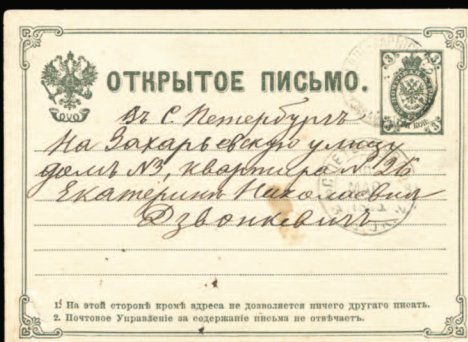 ОТКРЫТОЕ ПИСЬМО.
Въ С. Петербургъ
На Захарьевскую улицу
домъ №3, квартира № 26
Екатеринѣ Николаевнѣ
Дзвонкевичъ
1. На этой сторонѣ кромѣ адреса не дозволяется ничего другаго писать.
2. Почтовое Управленіе за содержаніе письма не отвѣчаетъ.